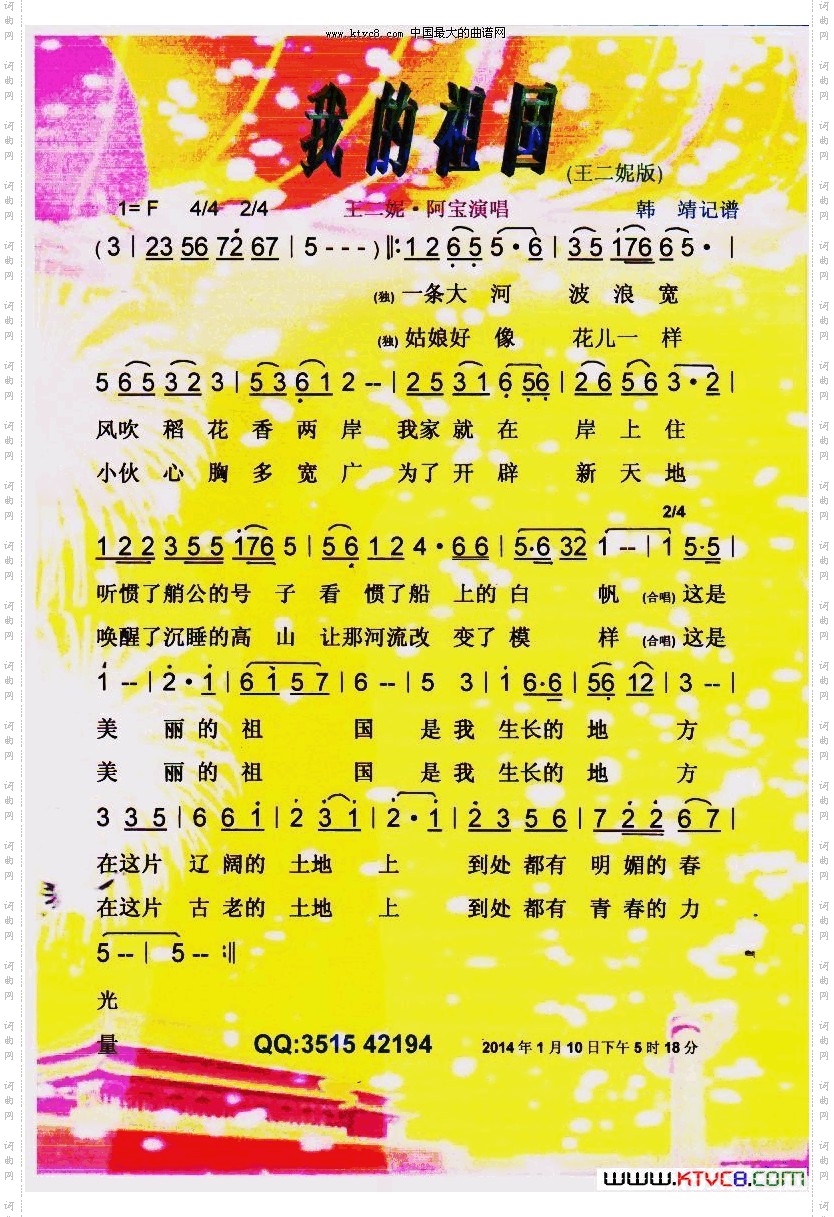 www.ktvc8.com 中国最大的曲谱网
我的祖国
(王二妮版)
1=F 4/4 2/4 王二妮·阿宝演唱 韩 靖记谱
(3|23 56 72 67|5---)‖:12 65 5·6|35 176 65·|
(独)一条大 河 波 浪 宽
(独)姑娘好 像 花儿一 样
5 65 32 3|53 61 2--|25 31 6 56|26 56 3·2|
风吹 稻 花 香 两 岸 我家 就 在 岸 上 住
小伙 心 胸 多 宽 广 为了 开 辟 新 天 地
2/4
122 355 176 5|56 12 4·66|5·6 32 1--|1 5·5|
听惯了艄公的号 子 看 惯了船 上的 白 帆 (合唱)这是
唤醒了沉睡的高 山 让那河流改 变了 模 样 (合唱)这是
1--|2·1|61 57|6--|5 3|1 6·6|56 12|3--|
美 丽 的 祖 国 是 我 生长的 地 方
美 丽 的 祖 国 是 我 生长的 地 方
3 35|6 61|2 31|2·1|23 56|7 22 67|
在这片 辽 阔的 土地 上 到处 都有 明 媚的 春
在这片 古 老的 土地 上 到处 都有 青 春的 力
5--|5--:‖
光
量 QQ:3515 42194 2014年1月10日下午5时18分
www.KTVC8.com
词曲网